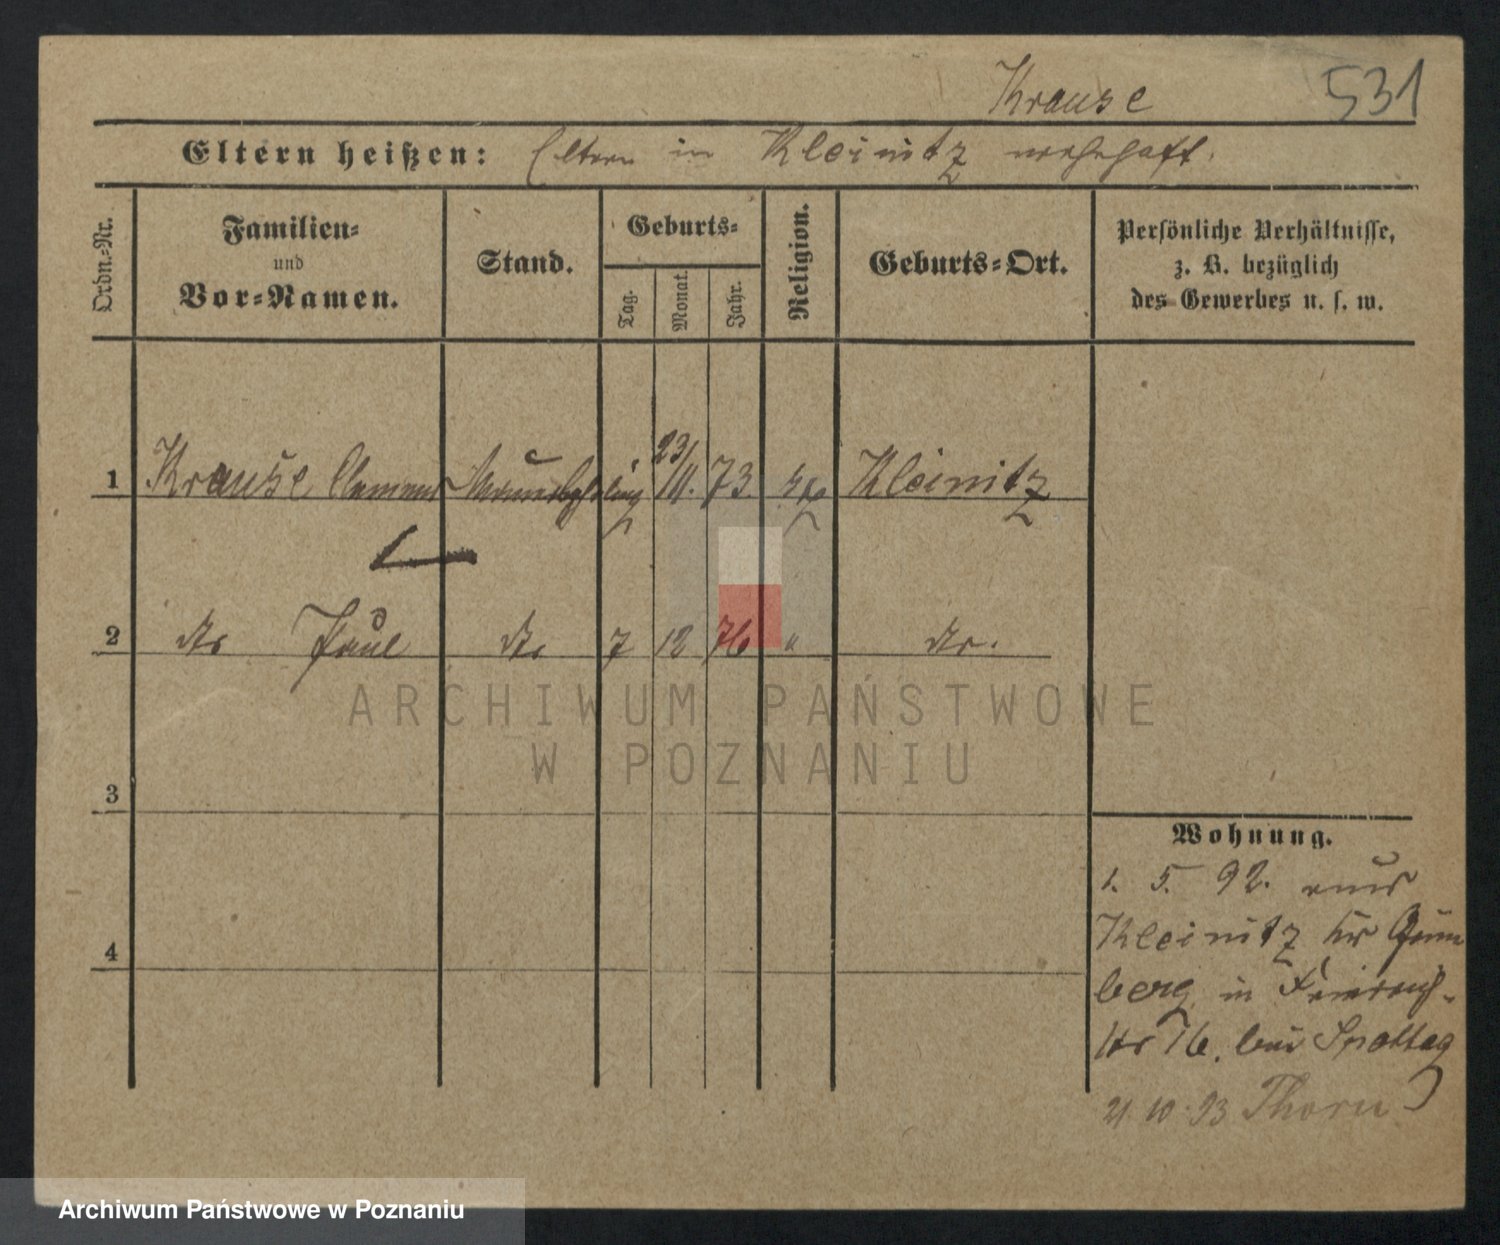 Krause 531
Eltern heißen: Eltern in Kleinitz wohnhaft.
Ordn.-Nr.
Familien-
und
Vor-Namen.
Stand.
Geburts-
Tag.
Monat.
Jahr.
Religion.
Geburts-Ort.
Persönliche Verhältnisse,
z. B. bezüglich
des Gewerbes u. s. w.
1 Krause Clemens 23/11. 73. Kleinitz
2 do Paul do 7 12 76 " do.
ARCHIWUM PAŃSTWOWE
W POZNANIU
3
4
Wohnung.
1. 5. 92. aus
Kleinitz Kr Grün
berg in
76. bei
21 10. 93 Thorn
Archiwum Państwowe w Poznaniu